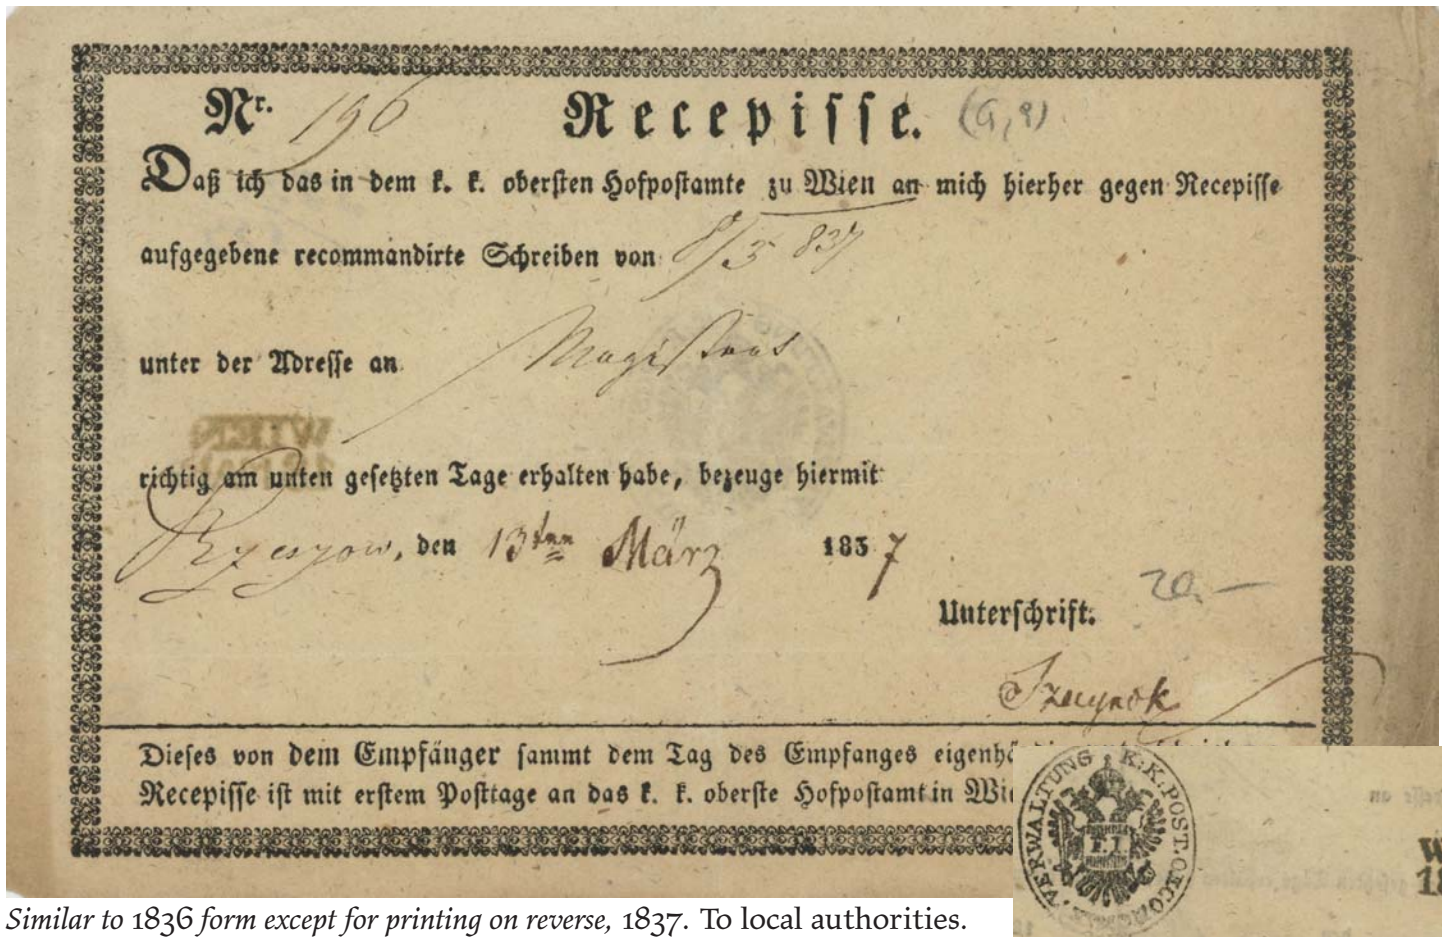 Nr. 196 Recepisse. (G, 9)
Daß ich das in dem k. k. obersten Hofpostamte zu Wien an mich hierher gegen Recepisse
aufgegebene recommandirte Schreiben von 8/3 837
unter der Adresse an Magistrat
WIEN
richtig am unten gesetzten Tage erhalten habe, bezeuge hiermit
Rzeszow, den 13ten März 1837
20.–
Unterschrift.
Dieses von dem Empfänger sammt dem Tag des Empfanges
Recepisse ist mit erstem Posttage an das k. k. oberste Hofpostamt in
VERWALTUNG K.K. POST
F.I.
Similar to 1836 form except for printing on reverse, 1837. To local authorities.